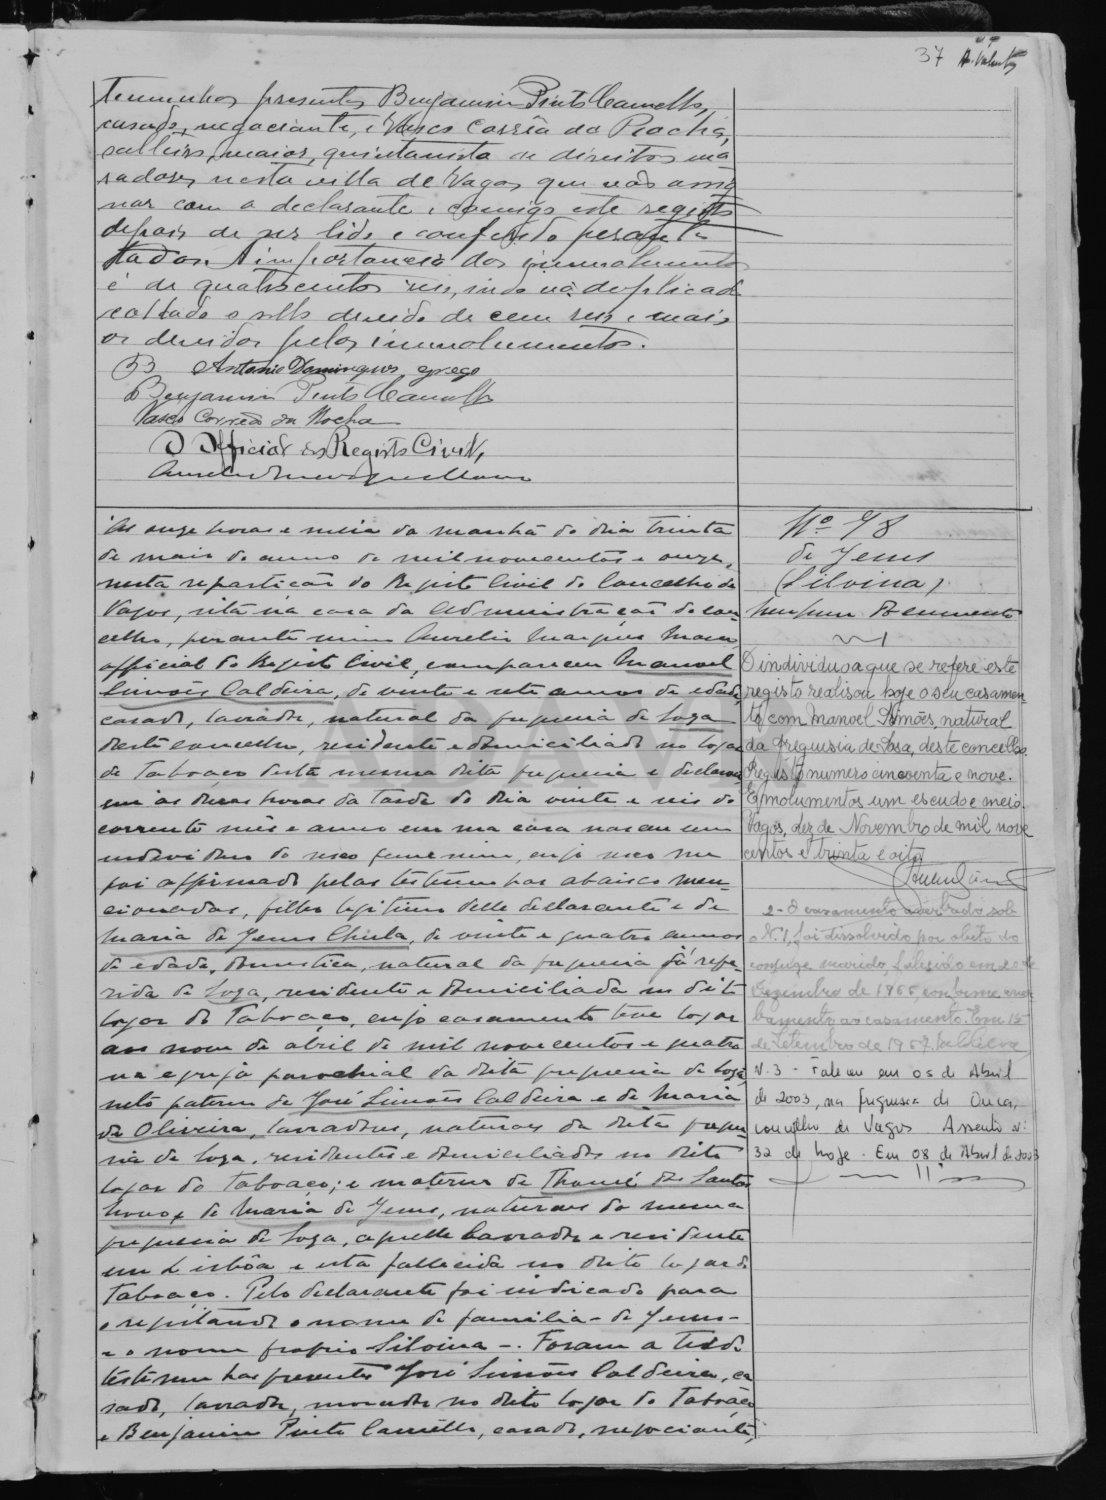 37
temunhas presentes Benjamim Pinto Camello,
casado, negociante, e Vasco Corrêa da Rocha,
solteiro, maior, quintanista de direito, mo
radores nesta villa de Vagos que vão assig
nar com o declarante e comigo este registo
depois de ser lido e conferido perante
todos. A importancia dos emmolumentos
é de quatrocentos reis,
collado o sello devido de cem reis e mais
os devidos pelos emmolumentos.
Antonio Domingues
Benjamim Pinto Camello
Vasco Corrêa da Rocha
O Official do Registo Civil,
Aurelio Marques Mano
Às onze horas e meia da manhã do dia trinta
de maio do anno de mil novecentos e onze,
nesta repartição do Registo Civil do Concelho de
Vagos, sita na casa da Administração do con-
celho, perante mim Aurelio Marques Mano
official do Registo Civil, compareceu Manoel
Simões Caldeira, de vinte e sete annos de edade,
casado, lavrador, natural da freguesia de Soza
deste concelho, residente e domiciliado no logar
do Taboaço desta mesma dita freguesia e declarou
que ás duas horas da tarde do dia vinte e seis do
corrente mês e anno em sua casa nasceu um
individuo do sexo femenino, cujo sexo me
foi affirmado pelas testemunhas abaixo men-
cionadas, filho legitimo delle declarante e de
Maria de Jesus Chula, de vinte e quatro annos
de edade, domestica, natural da freguesia já refe-
rida de Soza, residente e domiciliada no dito
logar do Taboaço, cujo casamento teve logar
aos nove de abril de mil novecentos e quatro
na egreja parochial da dita freguesia de Soza,
neto paterno de José Simões Caldeira e de Maria
de Oliveira, lavradores, naturaes da dita fregue-
sia de Soza, residentes e domiciliados no dito
logar do Taboaço; e materno de Thomé dos Santos
Novo e de Maria de Jesus, naturaes da mesma
freguesia de Soza, aquelle lavrador e residente
em Lisbôa e esta fallecida no dito logar do
Taboaço. Pelo declarante foi indicado para
o registando o nome de familia - de Jesus -
e o nome proprio Silvina -. Foram a tudo
testemunhas presentes José Simões Caldeira, ca
sado, lavrador, morador no dito logar do Taboaço
e Benjamim Pinto Camello, casado, negociante,
Nº 78
de Jesus
(Silvina)
Nenhum documento
1
O individuo a que se refere este
registo realisou hoje o seu casamen-
to com Manoel Simões, natural
da freguesia de Sosa, deste concelho.
Registo numero cincoenta e nove.
Emolumentos um escudo e meio.
Vagos, dez de Novembro de mil nove
centos e trinta e oito
2 - O casamento averbado sob
o N.º 1, foi dissolvido por obito do
conjuge marido, falecido em 20 de
Dezembro de 1966, conforme aver
bamento ao casamento. Em 15
de Setembro de 1967.
N. 3 - Faleceu em 05 de Abril
de 2003, na freguesia de Ouca,
concelho de Vagos Assento nº
32 de hoje. Em 08 de Abril de 2003
ADAVR